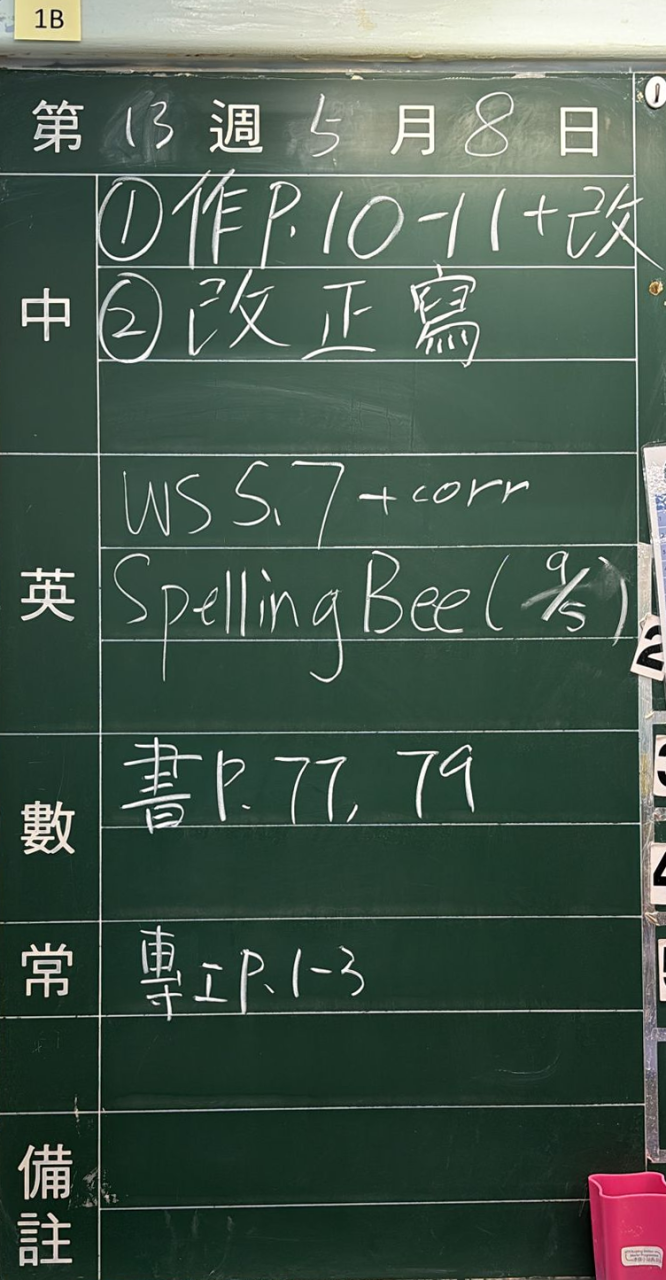 1B
第 13 週 5 月 8 日
中
①作P.10-11+改
②改正寫
英
WS 5.7 + corr
Spelling Bee (9/5)
數
書P.77, 79
常
專工P.1-3
備註
2
3
4